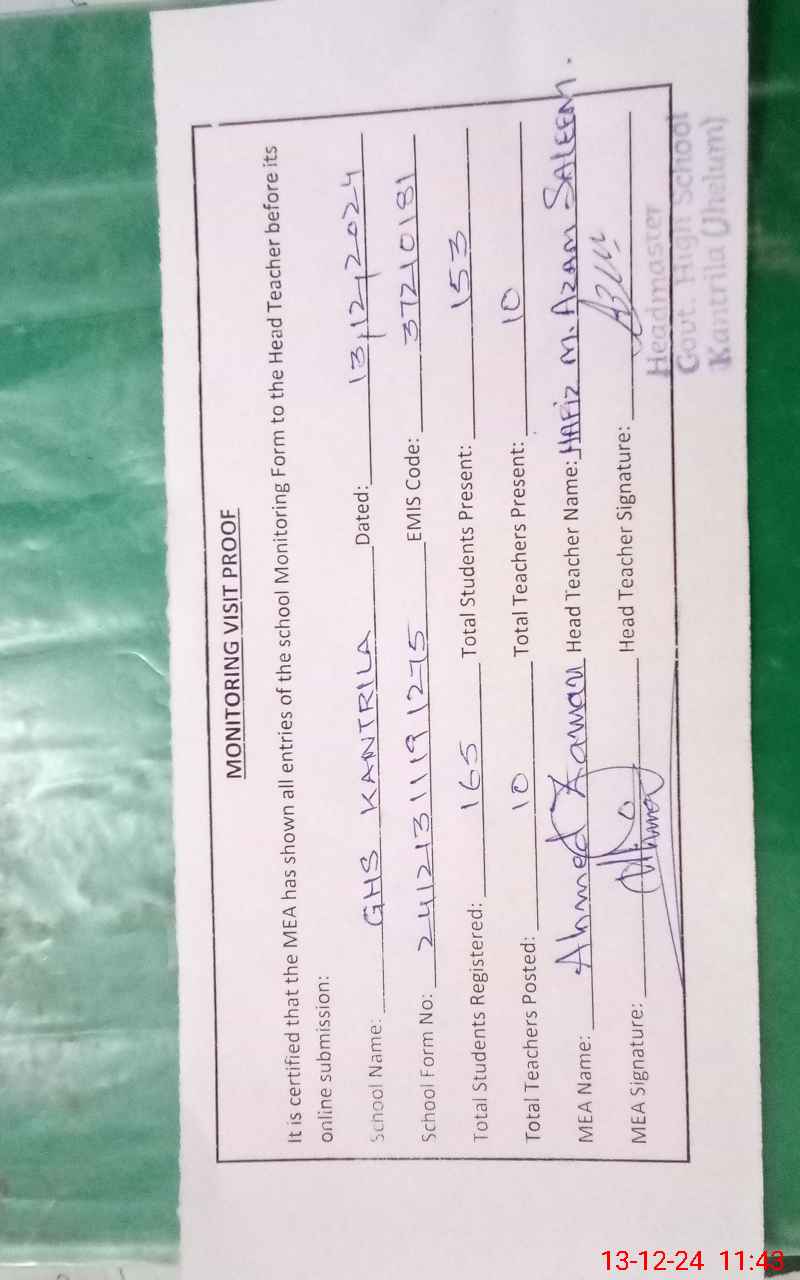 MONITORING VISIT PROOF
It is certified that the MEA has shown all entries of the school Monitoring Form to the Head Teacher before its
online submission:
School Name: GHS KANTRILA Dated: 13,12,2024
School Form No: 2412131119 1275 EMIS Code: 37210181
Total Students Registered: 165 Total Students Present: 153
Total Teachers Posted: 10 Total Teachers Present: 10
MEA Name: Ahmed Zaman Head Teacher Name: HAFIZ M. AZAM SALEEM.
MEA Signature: Head Teacher Signature:
Headmaster
Govt. High School
Kantrila (Jhelum)
13-12-24 11:43